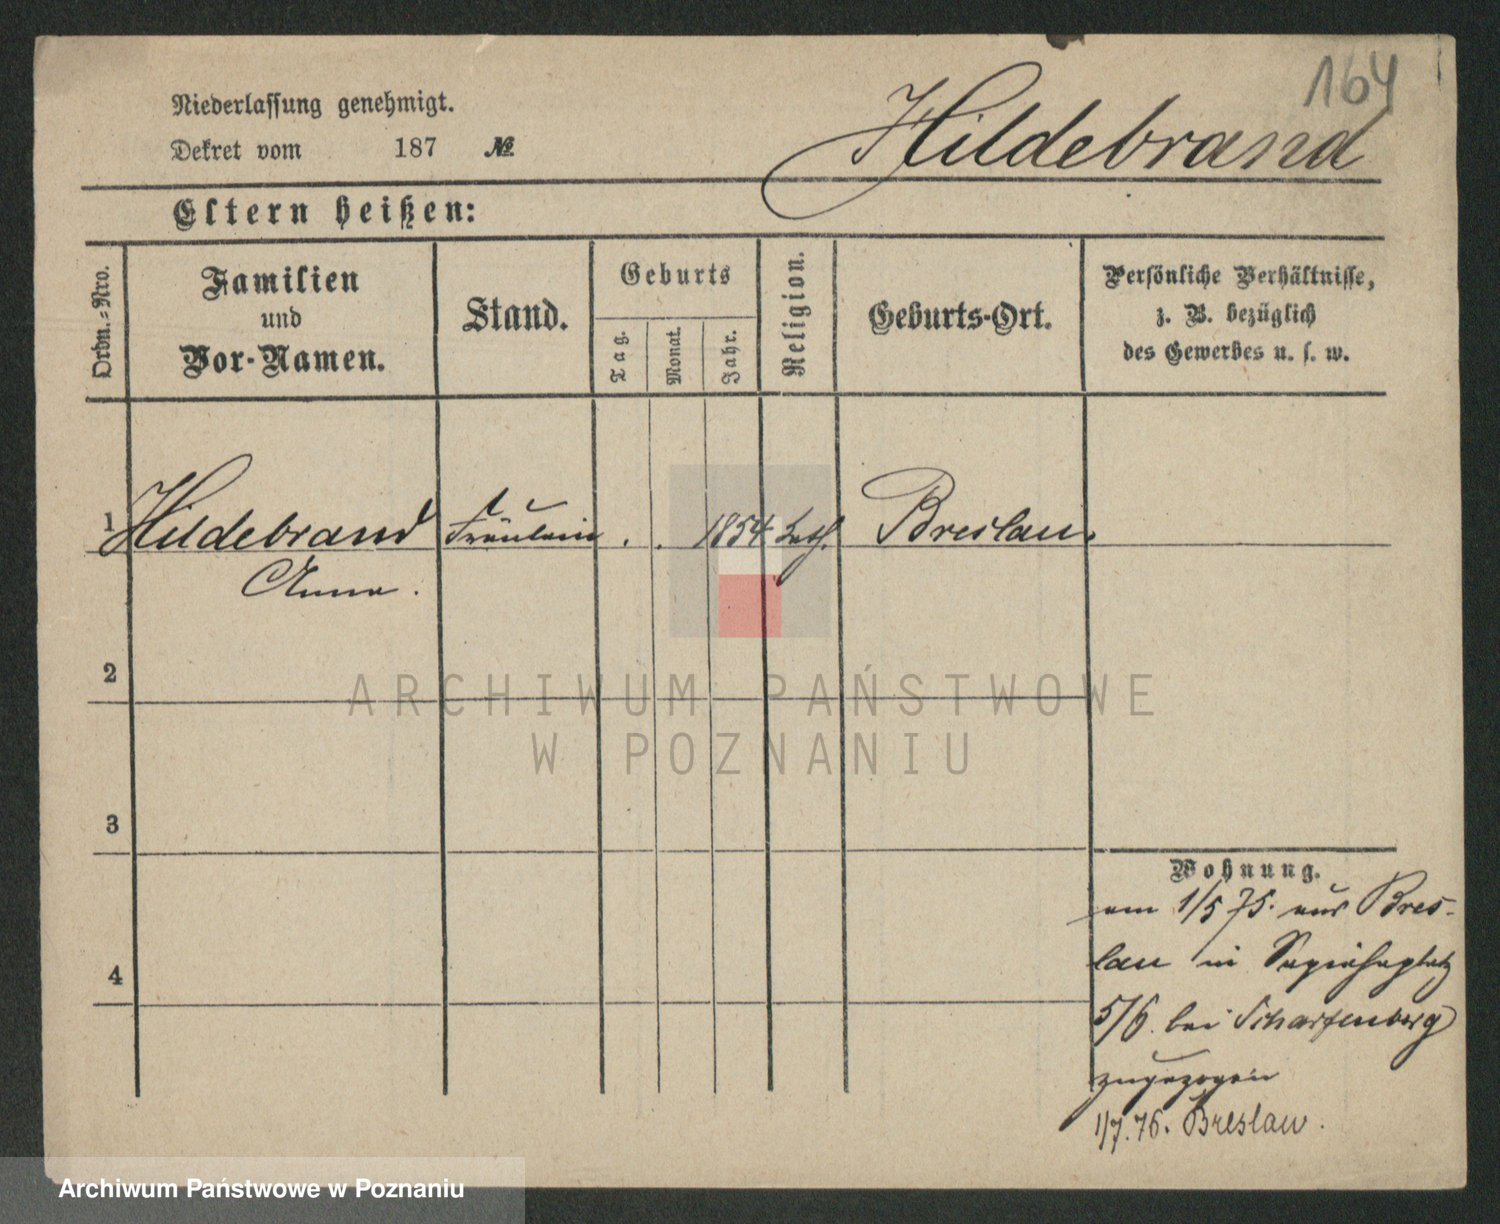 164
Niederlassung genehmigt.
Dekret vom 187 №
Hildebrand
Eltern heißen:
Ordn.-Nro.
Familien
und
Vor-Namen.
Stand.
Geburts
Tag.
Monat.
Jahr.
Religion.
Geburts-Ort.
Persönliche Verhältnisse,
z. B. bezüglich
des Gewerbes u. s. w.
1 Hildebrand Fräulein . . 1854 kath. Breslau.
Anna.
2
ARCHIWUM PAŃSTWOWE
W POZNANIU
3
Wohnung.
am 1/5 75. aus Bres-
lau in Sapiehaplatz
4
5/6. bei Scharfenberg
zugezogen
1/7. 76. Breslau.
Archiwum Państwowe w Poznaniu